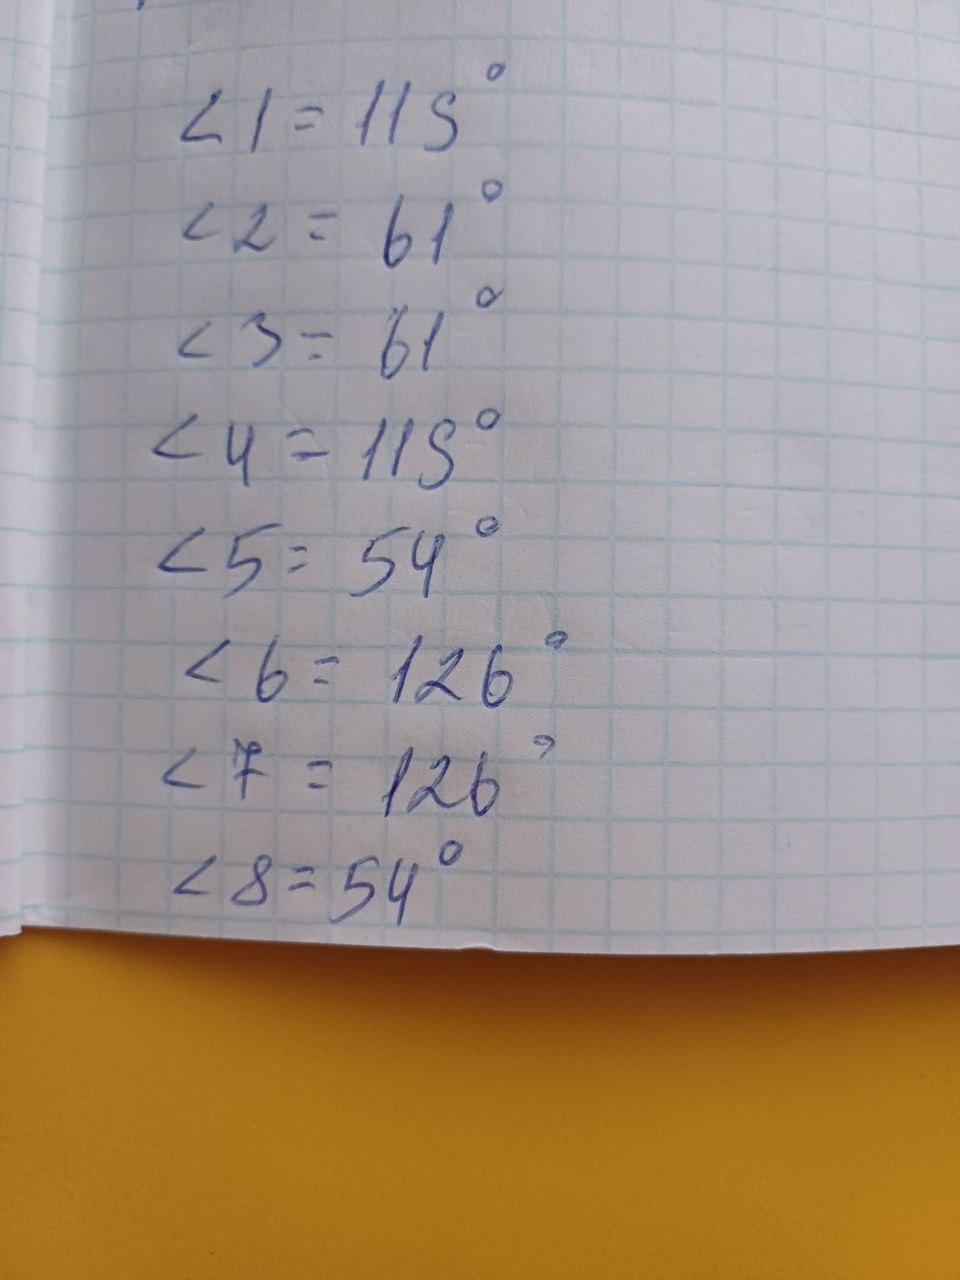 <1 = 119°
<2 = 61°
<3 = 61°
<4 = 119°
<5 = 54°
<6 = 126°
<7 = 126°
<8 = 54°